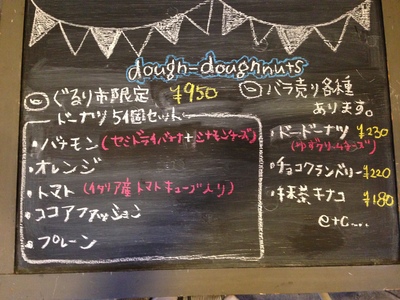 dough-doughnuts
ぐるり市限定 ¥950
ドーナツ 5個セット
・バナモン(セミドライバナナ+シナモンチーズ)
・オレンジ
・トマト(イタリア産トマトキューブ入り)
・ココアファッション
・プレーン
バラ売り各種
あります。
・ドードーナツ ¥230
(ゆずクリームチーズ)
・チョコクランベリー ¥220
・抹茶キナコ ¥180
etc...